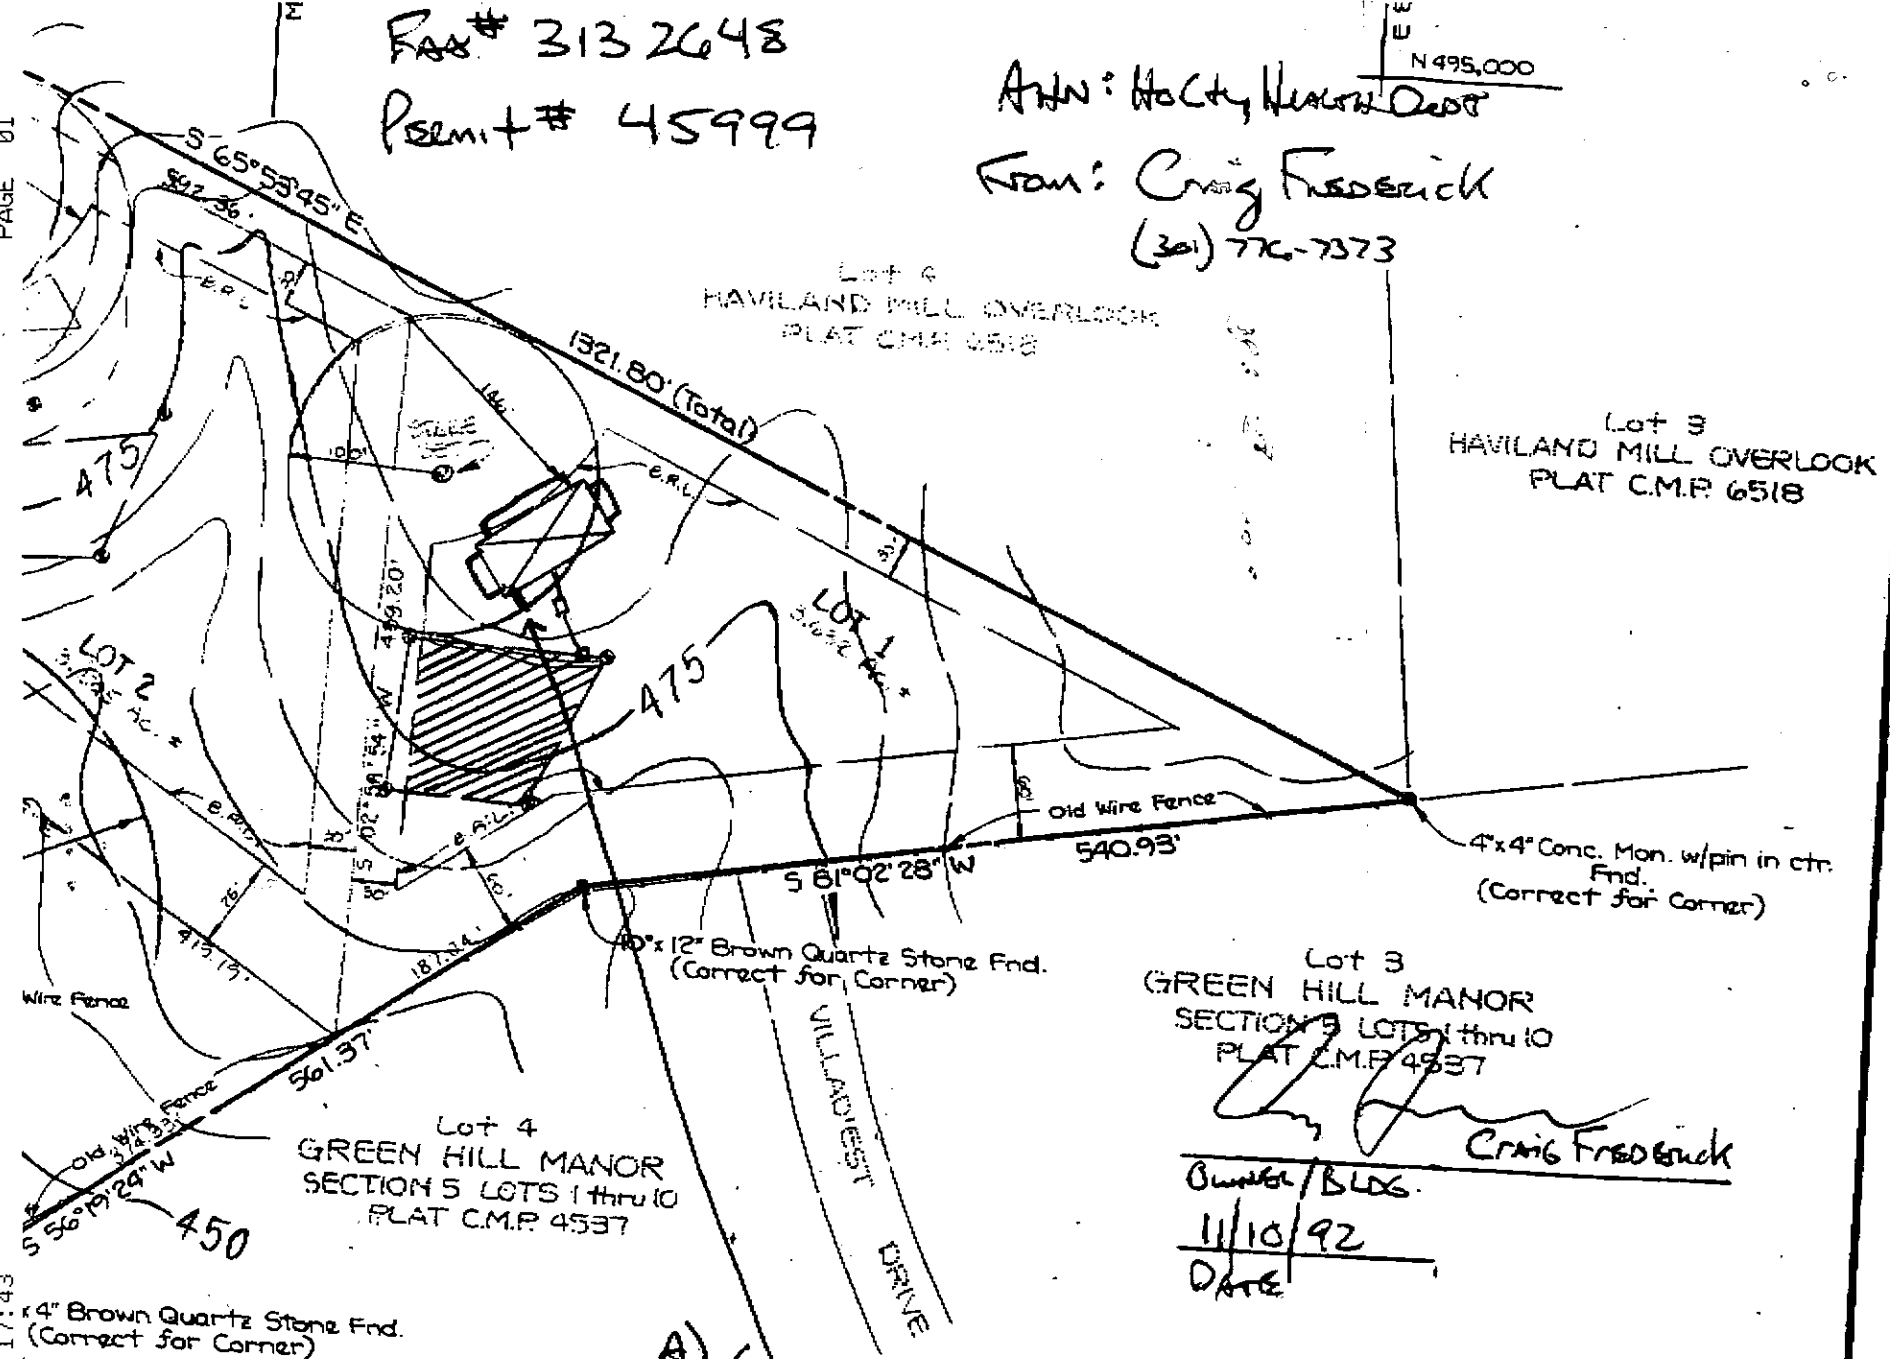 Fax # 313 2648
Permit # 45999
N 495,000
Attn: Ho Cty Health Dept
From: Craig Frederick
(301) 776-7373
PAGE 01
S 65°53'45" E
592.36'
B.R.L.
Lot 4
HAVILAND MILL OVERLOOK
PLAT C.M.P. 6518
1321.80' (Total)
146'
100'
475
B.R.L.
30'
Lot 3
HAVILAND MILL OVERLOOK
PLAT C.M.P. 6518
LOT 1
LOT 2
475
499.20'
W
B.R.L.
B.R.L.
60'
Old Wire Fence
540.93'
S 81°02'28" W
4"x4" Conc. Mon. w/pin in ctr.
Fnd.
(Correct for Corner)
76'
415.15'
187.04'
10"x12" Brown Quartz Stone Fnd.
(Correct for Corner)
Wire Fence
561.37'
Old Wire Fence
S 56°19'24" W
450
Lot 3
GREEN HILL MANOR
SECTION 5 LOTS 1 thru 10
PLAT C.M.P. 4537
Lot 4
GREEN HILL MANOR
SECTION 5 LOTS 1 thru 10
PLAT C.M.P. 4537
VILLADEST DRIVE
Craig Frederick
Owner/BLDG.
11/10/92
DATE
17:43
x4" Brown Quartz Stone Fnd.
(Correct for Corner)
A)